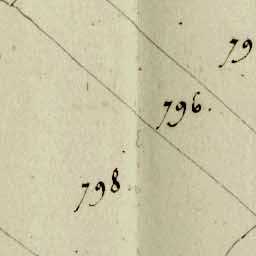 79
796.
798